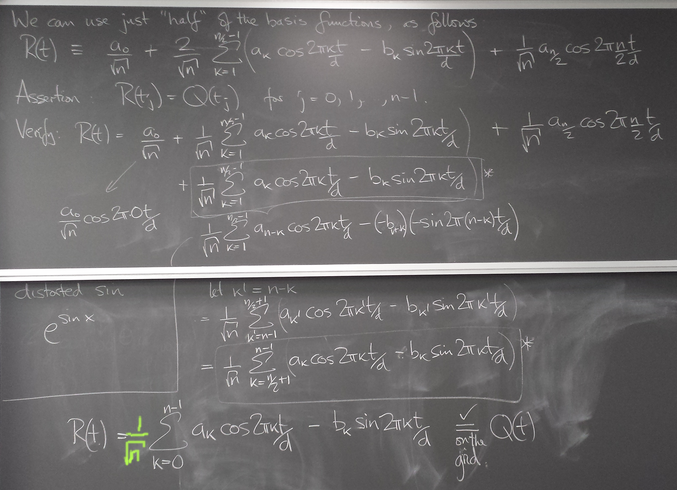 We can use just "half" of the basis functions, as follows
R(t) ≡ a₀/√n + 2/√n Σ_{k=1}^{n/2-1} (aₖ cos 2πkt/d - bₖ sin 2πkt/d) + 1/√n a_{n/2} cos 2πnt/2d
Assertion: R(tⱼ) = Q(tⱼ) for j = 0, 1, , n-1.
Verify: R(t) = a₀/√n + 1/√n Σ_{k=1}^{n/2-1} aₖ cos 2πk t/d - bₖ sin 2πk t/d) + 1/√n a_{n/2} cos 2π n/2 t/d
+ 1/√n Σ_{k=1}^{n/2-1} aₖ cos 2πk t/d - bₖ sin 2πk t/d) *
a₀/√n cos 2π0t/d
1/√n Σ_{k=1}^{n/2-1} a_{n-k} cos 2πk t/d - (-b_{n-k})(-sin 2π(n-k) t/d)
distorted sin
let k' = n-k
e^{sin x}
= 1/√n Σ_{k'=n-1}^{n/2+1} (a_{k'} cos 2πk' t/d - b_{k'} sin 2πk' t/d)
= 1/√n Σ_{k=n/2+1}^{n-1} (aₖ cos 2πk t/d - bₖ sin 2πk t/d) *
R(t) = 1/√n Σ_{k=0}^{n-1} aₖ cos 2πk t/d - bₖ sin 2πk t/d ✓= on the grid. Q(t)